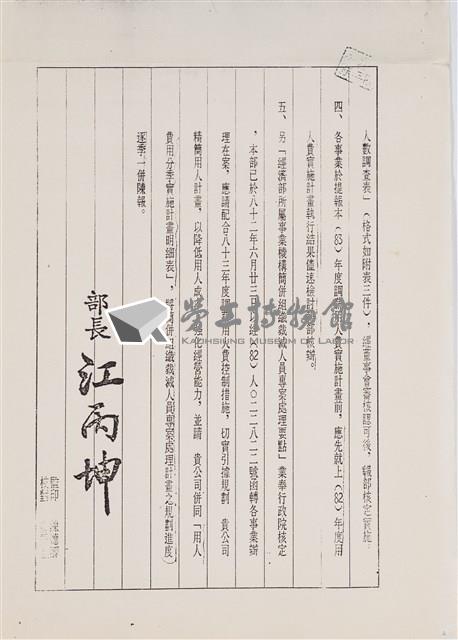 人數調查表」(格式如附表三件),經董事會審核認可後,報部核定實施。
四、各事業於提報本(83)年度調整用人費實施計畫前,應先就上(82)年度用
人費實施計畫執行結果儘速檢討報部核辦。
五、另「經濟部所屬事業機構簡併組織裁減人員專案處理要點」業奉行政院核定
,本部已於八十二年六月廿三日以經(82)人〇二二八一二號函轉各事業辦
理在案,應請配合八十三年度調整用人費控制措施,切實引據規劃 貴公司
精簡用人計畫,以降低用人成本,強化經營能力,並請 貴公司併同「用人
費用分季實施計畫明細表」,將簡併組織裁減人員專案處理計畫之規劃進度
逐季一併陳報。
部長 江丙坤
監印
校對
勞工博物館
KAOHSIUNG MUSEUM OF LABOR